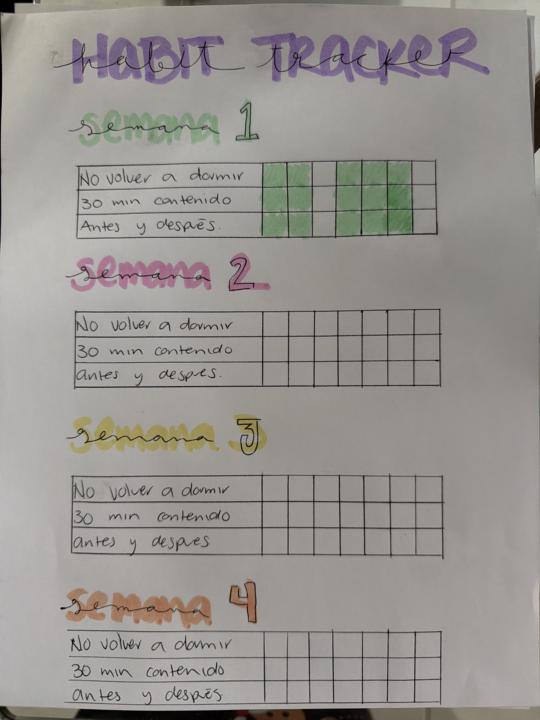 HABIT TRACKER
habit tracker
semana 1
No volver a dormir
30 min contenido
Antes y después.
semana 2
No volver a dormir
30 min contenido
antes y despues.
semana 3
No volver a dormir
30 min contenido
antes y despues
semana 4
No volver a dormir
30 min contenido
antes y después